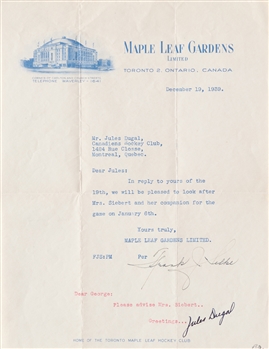 MAPLE LEAF GARDENS
LIMITED
TORONTO 2, ONTARIO, CANADA
December 19, 1938.
Mr. Jules Dugal,
Canadiens Hockey Club,
Montreal, Quebec.
Dear Jules:
In reply to yours of the
19th, we will be pleased to look after
Mrs. Siebert and her companion for the
game on January 5th.
Yours truly,
MAPLE LEAF GARDENS LIMITED.
Per
Dear George:
Please advise Mrs. Siebert..
Greetings...
Jules Dugal
HOME OF THE TORONTO MAPLE LEAF HOCKEY CLUB